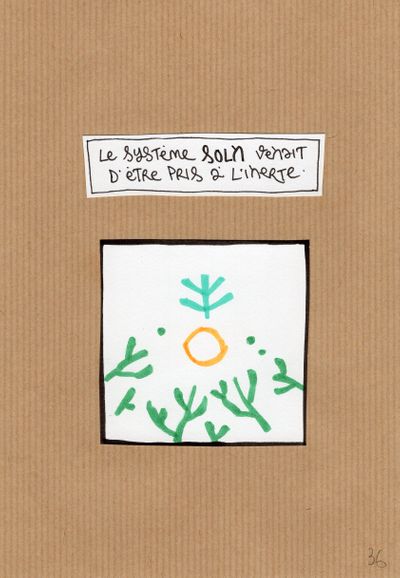 Le système SOLN venait
d'être pris à l'inerte.
36